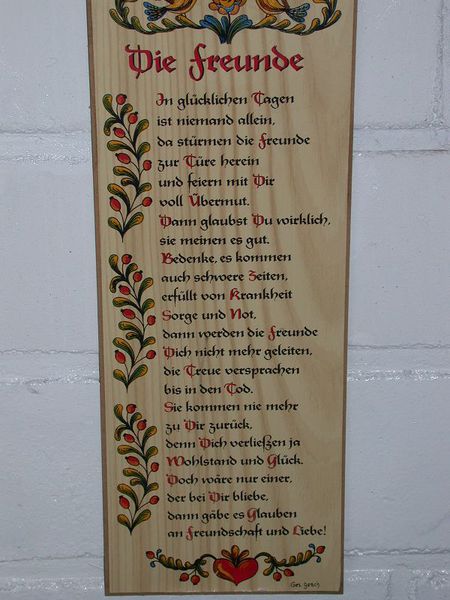 Die Freunde
In glücklichen Tagen
ist niemand allein,
da stürmen die Freunde
zur Türe herein
und feiern mit Dir
voll Übermut.
Dann glaubst Du wirklich,
sie meinen es gut.
Bedenke, es kommen
auch schwere Zeiten,
erfüllt von Krankheit
Sorge und Not,
dann werden die Freunde
Dich nicht mehr geleiten,
die Treue versprachen
bis in den Tod.
Sie kommen nie mehr
zu Dir zurück,
denn Dich verließen ja
Wohlstand und Glück.
Doch wäre nur einer,
der bei Dir bliebe,
dann gäbe es Glauben
an Freundschaft und Liebe!